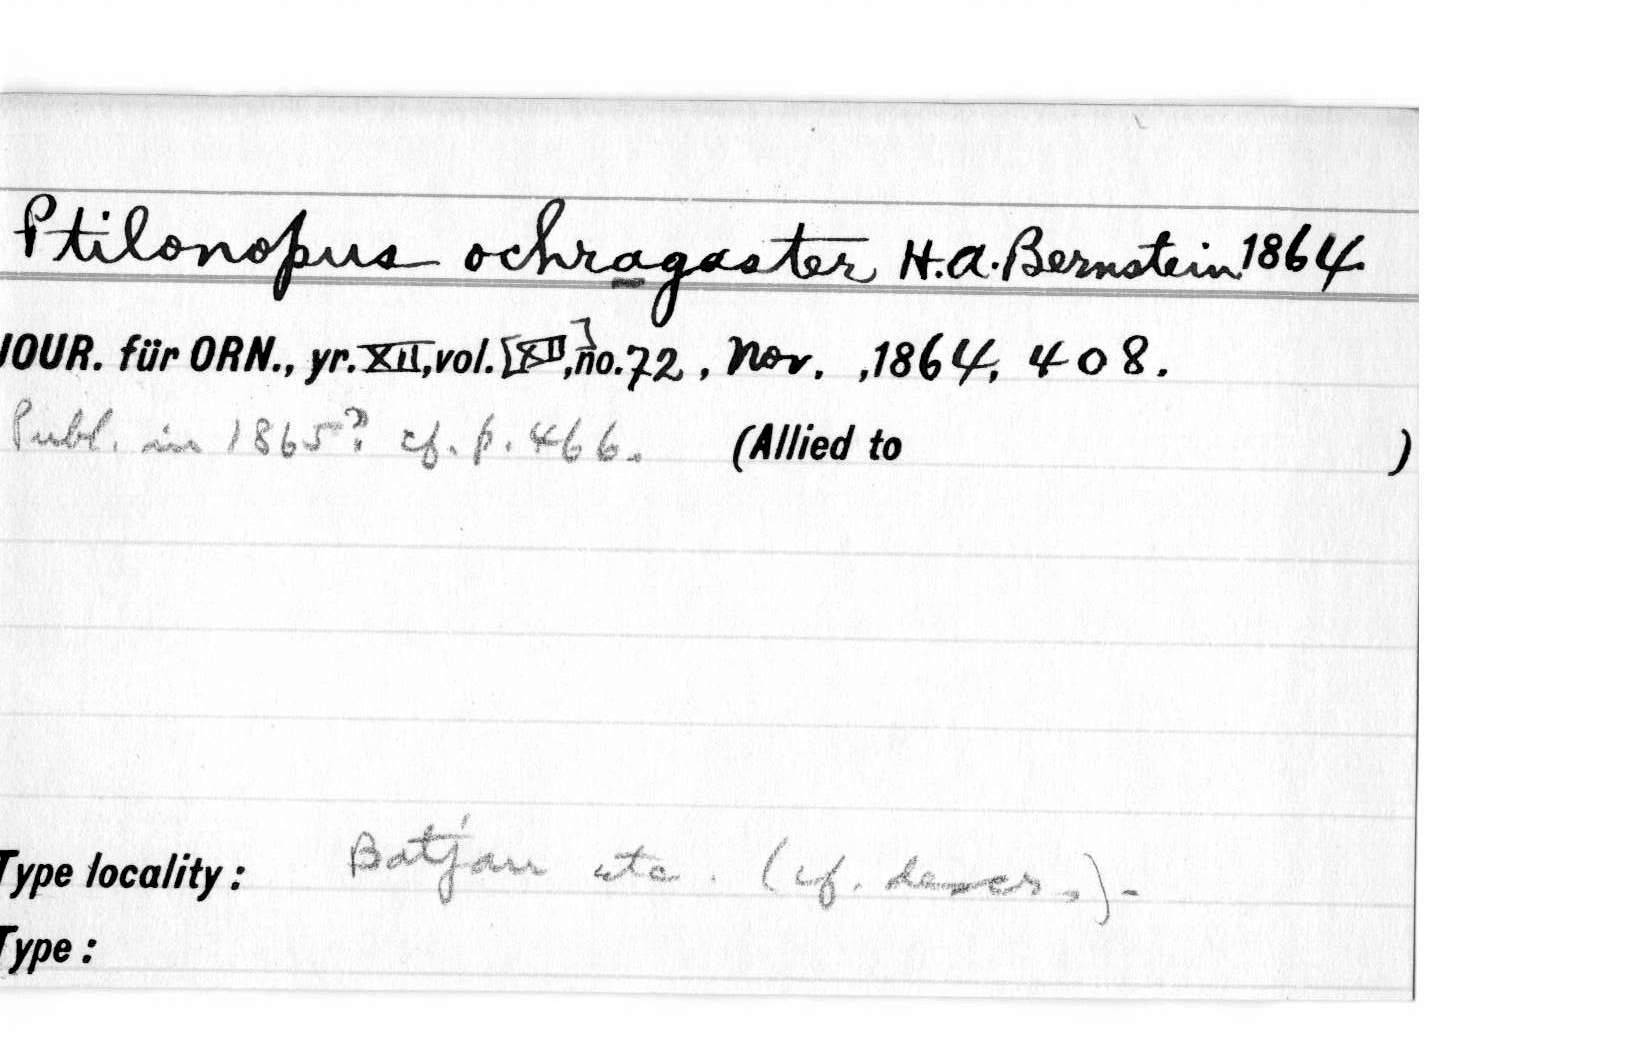 Ptilonopus ochragaster H.A. Bernstein 1864.
JOUR. für ORN., yr. XII, vol. [XII], no. 72, Nov. ,1864, 408.
Publ. in 1865? cf. p. 466. (Allied to )
Type locality: Batjan etc. (cf. descr.).-
Type: